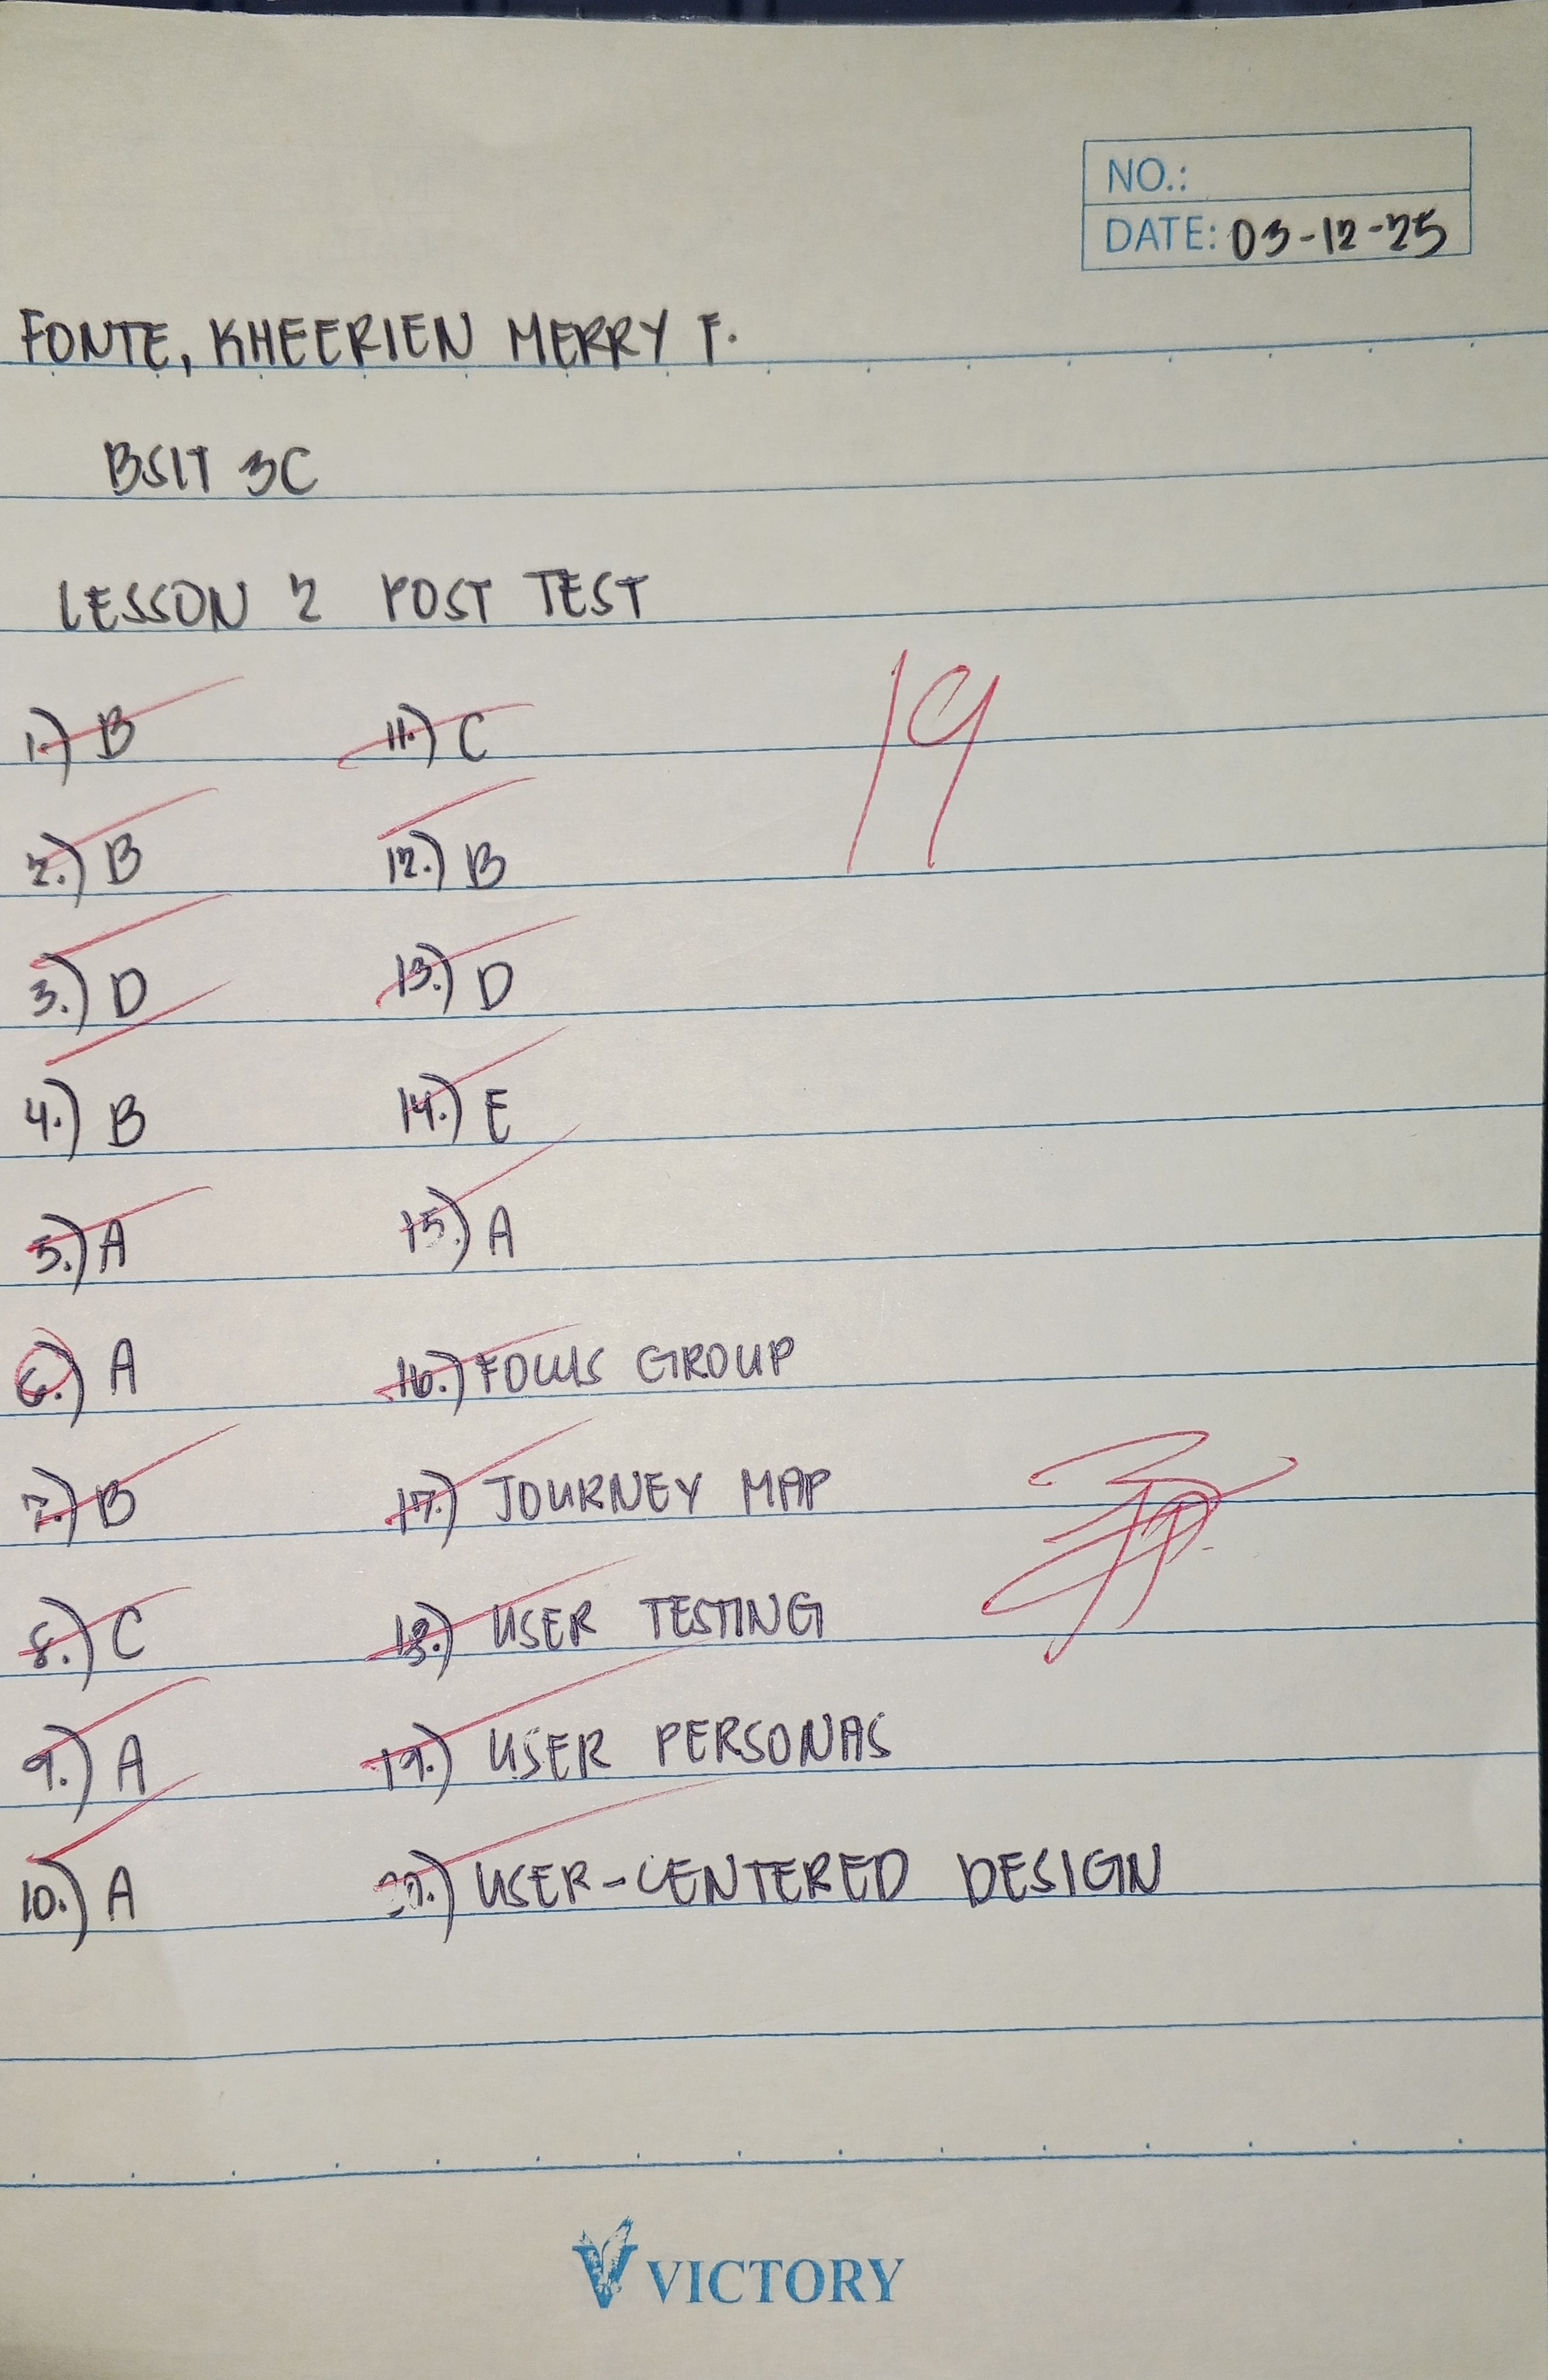 NO.:
DATE: 03-12-25
FONTE, KHEERIEN MERRY F.
BSIT 3C
LESSON 2 POST TEST
19
1.) B
2.) B
3.) D
4.) B
5.) A
6.) A
7.) B
8.) C
9.) A
10.) A
11.) C
12.) B
13.) D
14.) E
15.) A
16.) FOCUS GROUP
17.) JOURNEY MAP
18.) USER TESTING
19.) USER PERSONAS
20.) USER-CENTERED DESIGN
VICTORY